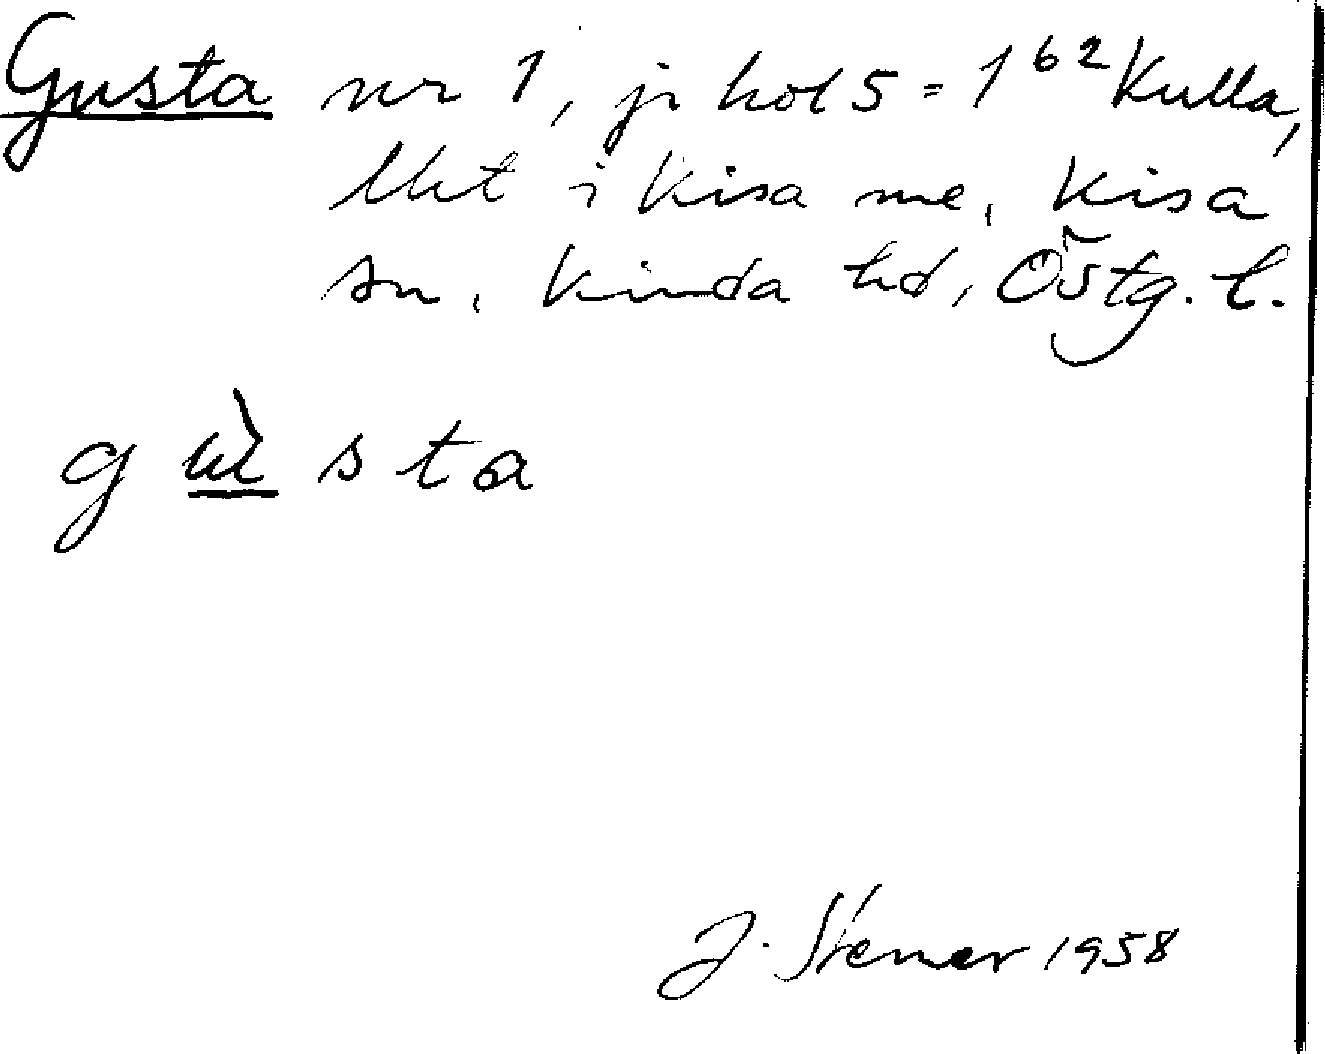 Gusta nr 1, jr kod 5 = 1⁶² Kulla,
lht i Kisa me, Kisa
sn, Kinda hd, Östg. l.
g ù s t a
J. Stener 1958